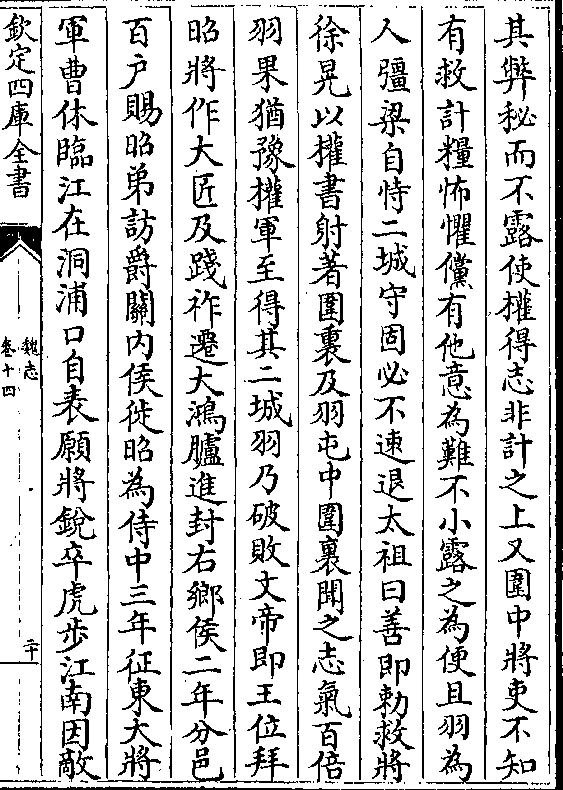 其弊秘而不露使權得志非計之上又圍中將吏不知
有救計糧怖懼儻有他意為難不小露之為便且羽為
人彊梁自恃二城守固必不速退太祖曰善即勅救將
徐晃以權書射著圍裏及羽屯中圍裏聞之志氣百倍
羽果猶豫權軍至得其二城羽乃破敗文帝即王位拜
昭將作大匠及踐祚遷大鴻臚進封右鄉侯二年分邑
百户賜昭弟訪爵關内侯徙昭為侍中三年征東大將
軍曹休臨江在洞浦口自表願將銳卒虎步江南因敵
欽定四庫全書
魏志
卷十四
二十